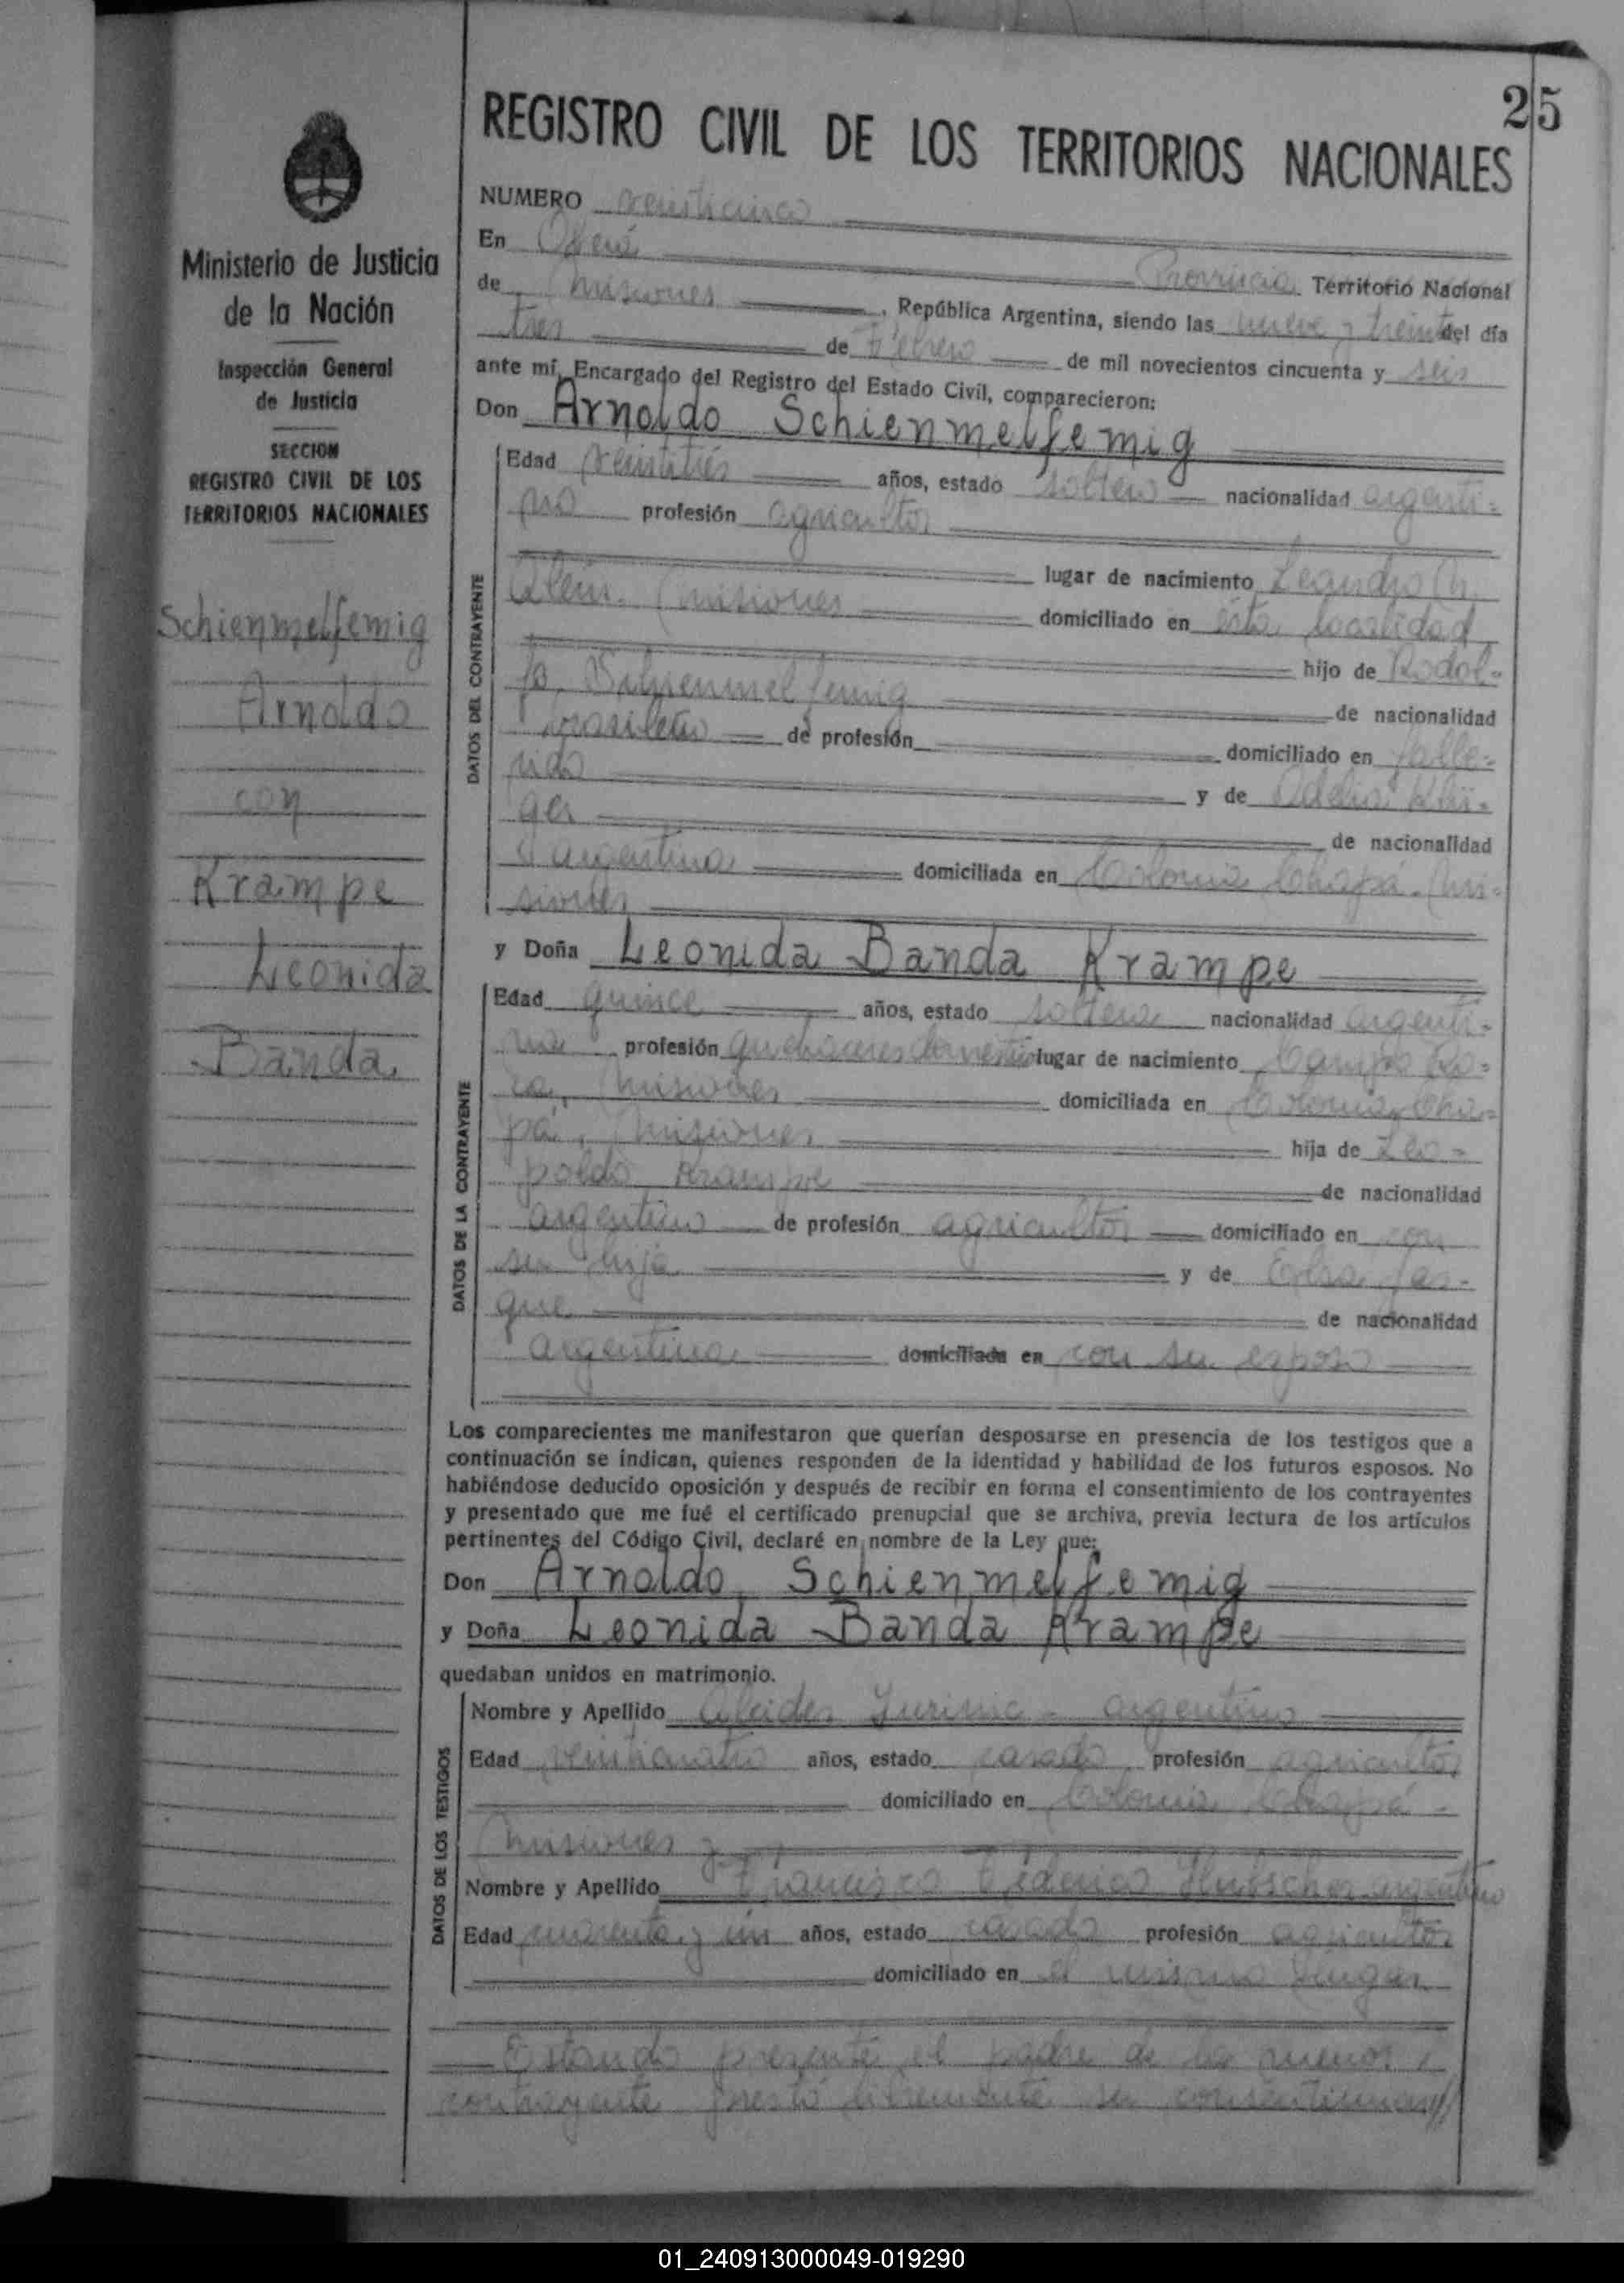 25
REGISTRO CIVIL DE LOS TERRITORIOS NACIONALES
Ministerio de Justicia
de la Nación
Inspección General
de Justicia
SECCION
REGISTRO CIVIL DE LOS
TERRITORIOS NACIONALES
Schienmelfemig
Arnoldo
con
Krampe
Leonida
Banda
NUMERO veinticinco
En Oberá
Provincia Territorio Nacional
de Misiones, República Argentina, siendo las nueve y treinta del día
tres de Febrero de mil novecientos cincuenta y seis
ante mí, Encargado del Registro del Estado Civil, comparecieron:
Don Arnoldo Schienmelfemig
DATOS DEL CONTRAYENTE
Edad veintitrés años, estado soltero nacionalidad argenti-
no profesión agricultor
lugar de nacimiento Leandro N.
Alem. Misiones domiciliado en ésta localidad
hijo de Rodol-
fo Schienmelfemig de nacionalidad
brasileño de profesión domiciliado en falle-
cido y de Adelia
de nacionalidad
argentina domiciliada en Colonia Chapá. Mi-
siones
y Doña Leonida Banda Krampe
DATOS DE LA CONTRAYENTE
Edad quince años, estado soltera nacionalidad argenti-
na profesión quehaceres domestic lugar de nacimiento Campo
Misiones domiciliada en Colonia Cha-
pá, Misiones hija de Leo-
poldo Krampe de nacionalidad
argentino de profesión agricultor domiciliado en con
su hija y de Elsa
de nacionalidad
argentina domiciliada en con su esposo
Los comparecientes me manifestaron que querían desposarse en presencia de los testigos que a
continuación se indican, quienes responden de la identidad y habilidad de los futuros esposos. No
habiéndose deducido oposición y después de recibir en forma el consentimiento de los contrayentes
y presentado que me fué el certificado prenupcial que se archiva, previa lectura de los artículos
pertinentes del Código Civil, declaré en nombre de la Ley que:
Don Arnoldo Schienmelfemig
y Doña Leonida Banda Krampe
quedaban unidos en matrimonio.
DATOS DE LOS TESTIGOS
Nombre y Apellido Alcides - argentino
Edad veinticuatro años, estado casado profesión agricultor
domiciliado en Colonia Chapá -
Misiones y
Nombre y Apellido Francisco Federico argentino
Edad cuarenta y un años, estado casado profesión agricultor
domiciliado en el mismo lugar
Estando presente el padre de la menor
contrayente prestó libremente su
01_240913000049-019290